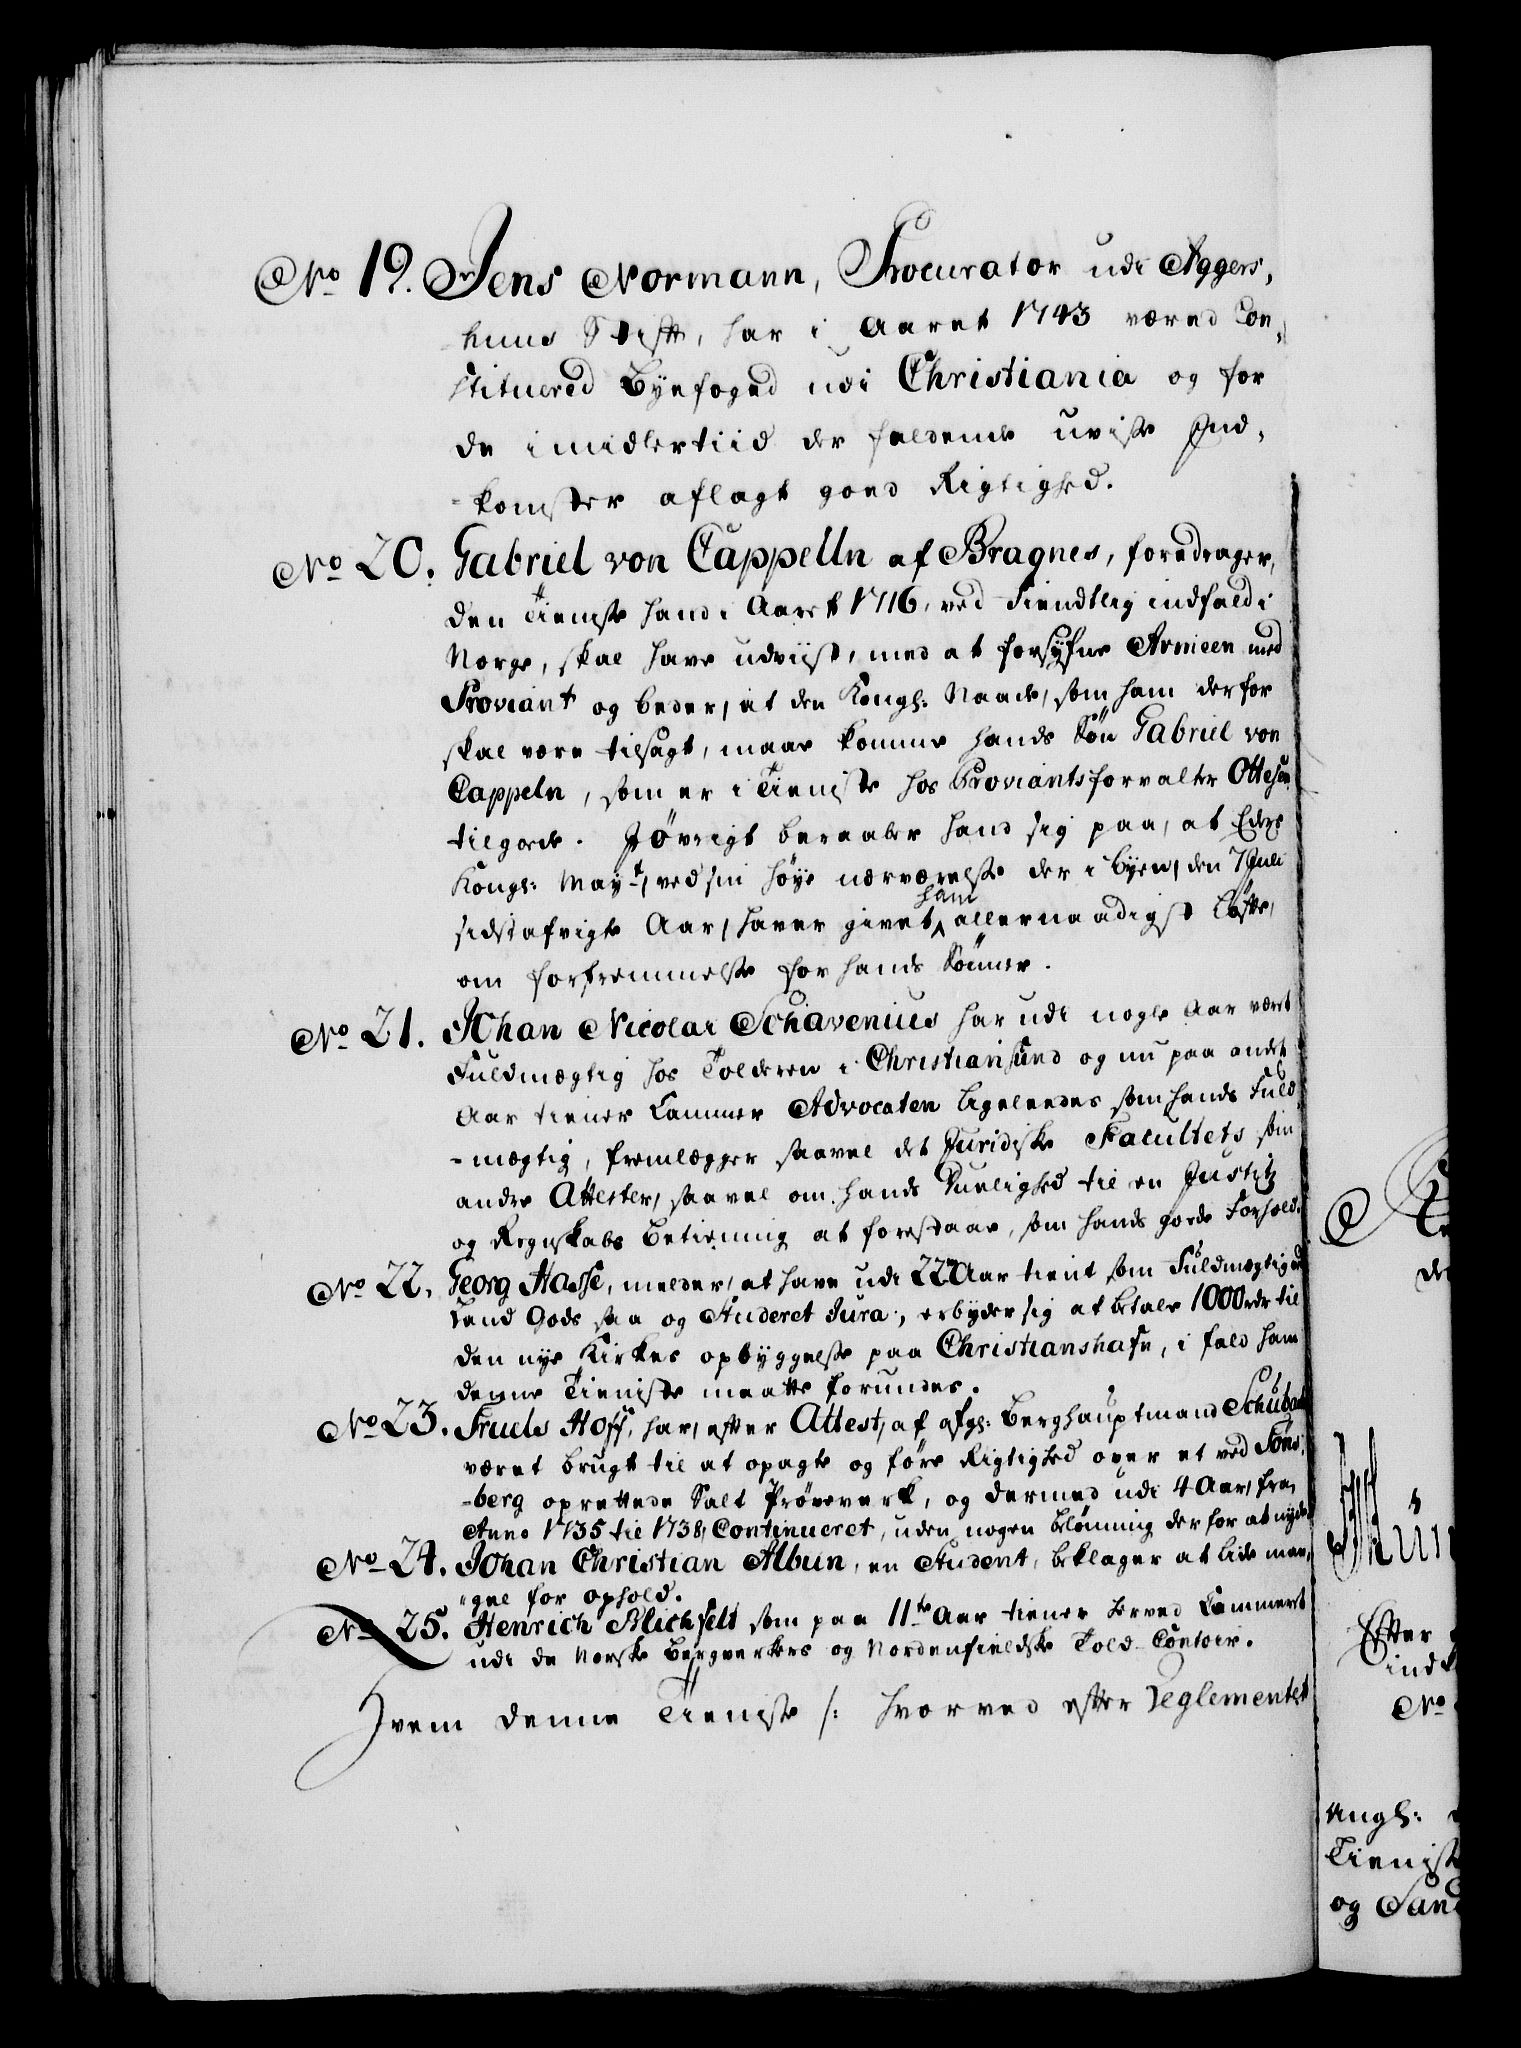 No 19. Jens Normann, Procurator udi Aggers,
huus Stift, har i Aaret 1743 været Con,
stituered Byefoged udi Christiania og for
de imidlertiid der faldende uvisse Ind,
-komster aflagt goed Rigtighed.
No 20. Gabriel von Cappelln af Bragnes, foredrager,
den Tieniste hand i Aaret 1716, ved Fiendtlig indfald i
Norge, skal have udviist, med at forsyfne Armeen med
Proviant og beder, at den Kongl: Naade, som ham derfor
skal være tilsagt, maae komme hands Sön Gabriel von
Cappeln, som er i Tieniste hos Proviantsforvalter Ottesen
tilgode. Jøvrigt beraaber hand sig paa, at Eders
Kongl: Mayt, ved sin høye nærværelse der i byen, den 7 Juli
sidstafvigte Aar, haver givet ham allernaadigst Løfte,
om forfremmelse for hands Sönner.
No 21. Johan Nicolai Schavenius har udi nogle Aar været
Fuldmægtig hos Tolderen i Christiansund og nu paa andet
Aar tiener Cammer Advocaten ligeleedes som hands Fuld,
-mægtig, fremlægger saavel det Juridiske Facultets som
andre Attester, saavel om hands Duelighed til en Justitz
og Regnskabs Betiening at forestaae, som hands goede Forhold.
No 22. Georg Hasse, melder, at have udi 22 Aar tient som Fuldmægtig ved
Land Gods saa og Studeret Jura, erbyder sig at betale 1000 rdr til
den nye Kirkes opbyggelse paa Christianshafn, i fald ham
denne Tieniste maatte forundes.
No 23. Truels Hoff, har, efter Attest, af afgl: Berghauptmand Schubart
været brugt til at opagte og føre Rigtighed over et ved Töns,
-berg oprettede Salt Prøveverk, og dermed udi 4 Aar, fra
Anno 1735 til 1738, Continueret, uden nogen belønning derfor at nyde
No 24. Johan Christian Albun, en Student, beklager at lide man,
-gel for ophold.
No 25. Henrich Blichfelt som paa 11te Aar tiener herved Cammeret
udi de Norske Bergverkers og Nordenfieldske Told-Contoir.
Hvem denne Tieniste /: hvorved efter Reglementet
og
Efter
No
Tienist
og